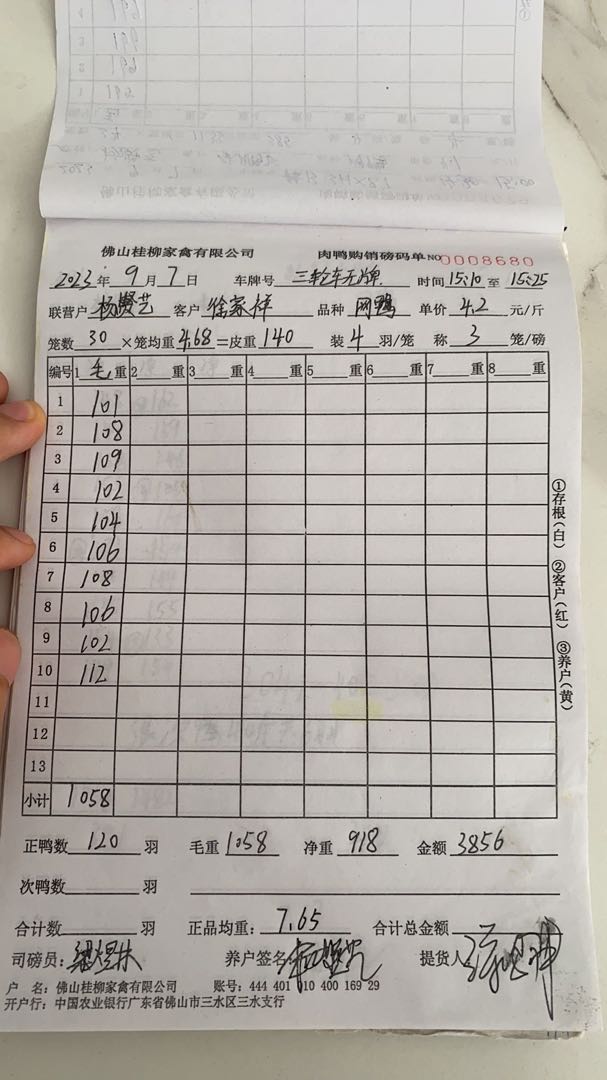 佛山桂柳家禽有限公司 肉鸭购销磅码单 NO 0008680
2023年 9月 7日 车牌号 三轮车无牌 时间 15:10 至 15:25
联营户 杨贤艺 客户 徐家祥 品种 网鸭 单价 4.2 元/斤
笼数 30 ×笼均重 4.68 =皮重 140 装 4 羽/笼 称 3 笼/磅
编号 1 毛 重 2 重 3 重 4 重 5 重 6 重 7 重 8 重
1 101
2 108
3 109
4 102
5 104
6 106
7 108
8 106
9 102
10 112
11
12
13
小计 1058
①存根(白) ②客户(红) ③养户(黄)
正鸭数 120 羽 毛重 1058 净重 918 金额 3856
次鸭数 羽
合计数 羽 正品均重: 7.65 合计总金额
司磅员: 养户签名: 提货人:
户 名: 佛山桂柳家禽有限公司 账号: 444 401 010 400 169 29
开户行: 中国农业银行广东省佛山市三水区三水支行